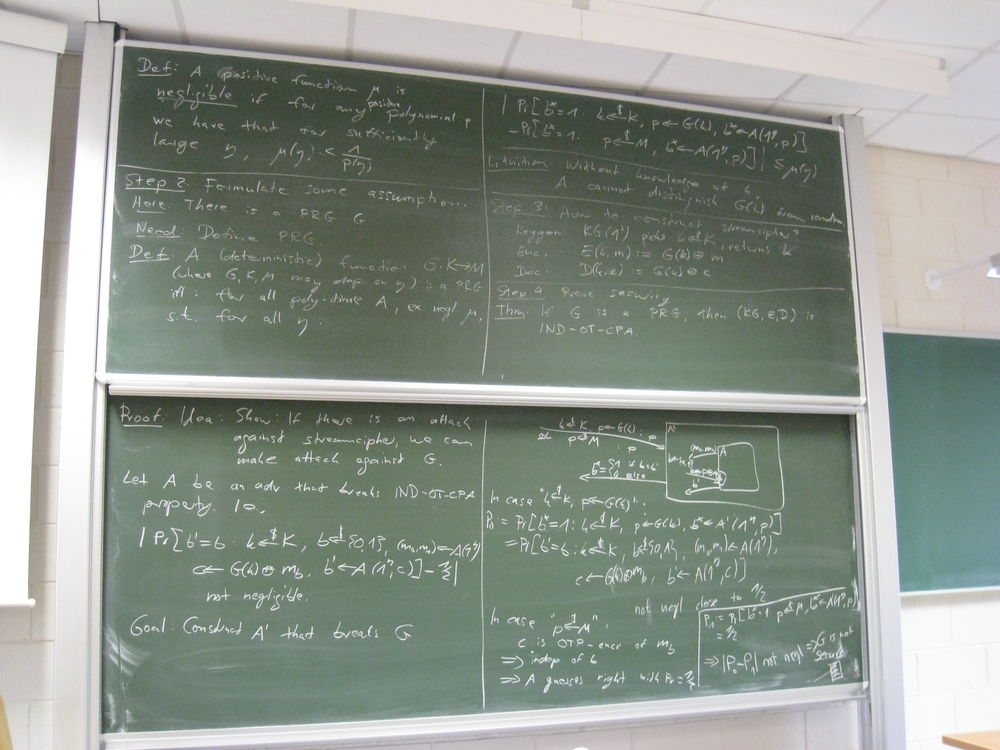 Def: A positive function μ is
negligible if for any positive polynomial p
we have that for sufficiently
large η, μ(η) < 1/p(η)
Step 2. Formulate some assumption...
Here: There is a PRG G
Need: Define PRG
Def: A (deterministic) function G: K→M
(where G, K, M may dep. on η) is a PRG
iff: for all poly-time A, ex negl μ,
s.t. for all η:
| Pr[b*=1: k←$K, p←G(k), b*←A(1^η, p)]
- Pr[b*=1: p←$M, b*←A(1^η, p)] | ≤ μ(η)
Intuition: Without knowledge of k,
A cannot distinguish G(k) from random
Step 3: How to construct streamcipher?
Keygen: KG(1^η) picks k←$K, returns k
Enc: E(k,m) := G(k)⊕m
Dec: D(k,c) := G(k)⊕c
Step 4 Prove security
Thm: If G is a PRG, then (KG,E,D) is
IND-OT-CPA.
Proof: Idea: Show: If there is an attack
against streamcipher, we can
make attack against G.
Let A be an adv that breaks IND-OT-CPA
property. I.e.,
| Pr[b'=b: k←$K, b←${0,1}, (m₀,m₁)←A(1^η)
c←G(k)⊕m_b, b'←A(1^η,c)] - 1/2 |
not negligible.
Goal: Construct A' that breaks G
k←$K, p←G(k):
or p←$M : p
A'
(m₀,m₁) A
b*= {1 if b=b'
0 else
b'
In case "k←$K, p←G(k)":
P₀ = Pr[b*=1: k←$K, p←G(k), b*←A'(1^η,p)]
= Pr[b'=b: k←$K, b←${0,1}, (m₀,m₁)←A(1^η),
c←G(k)⊕m_b, b'←A(1^η,c)]
not negl close to 1/2
In case "p←$M":
c is OTP-encr of m_b
⇒ indep of b
⇒ A guesses right with Pr = 1/2
P₁ := Pr[b*=1 p←$M, b*←A'(1^η,p)]
= 1/2
⇒ |P₀-P₁| not negl ⇒ G is not
secure